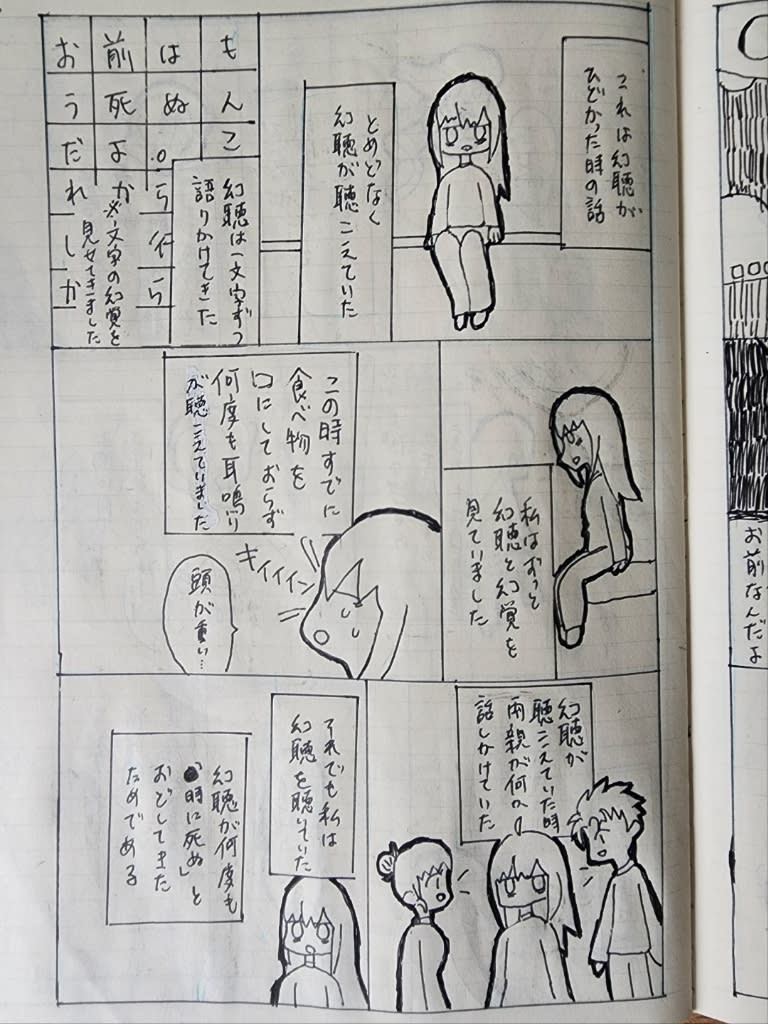 これは幻聴が
ひどかった時の話
とめどなく
幻聴が聴こえていた
幻聴は一文字ずつ
語りかけてきた
お前はも
う死ぬん
だよ。こ
れから
し行
から
※一文字の幻覚を
見せてきました
私はずっと
幻聴と幻覚を
見ていました
この時すでに
食べ物を
口にしておらず
何度も耳鳴り
が聴こえていました
キィィィン
頭が重い…
幻聴が
聴こえていた時
両親が何か
話しかけていた
それでも私は
幻聴を聴いていた
幻聴が何度も
「●時に死ぬ」と
おどしてきた
ためである
お前なんだよ